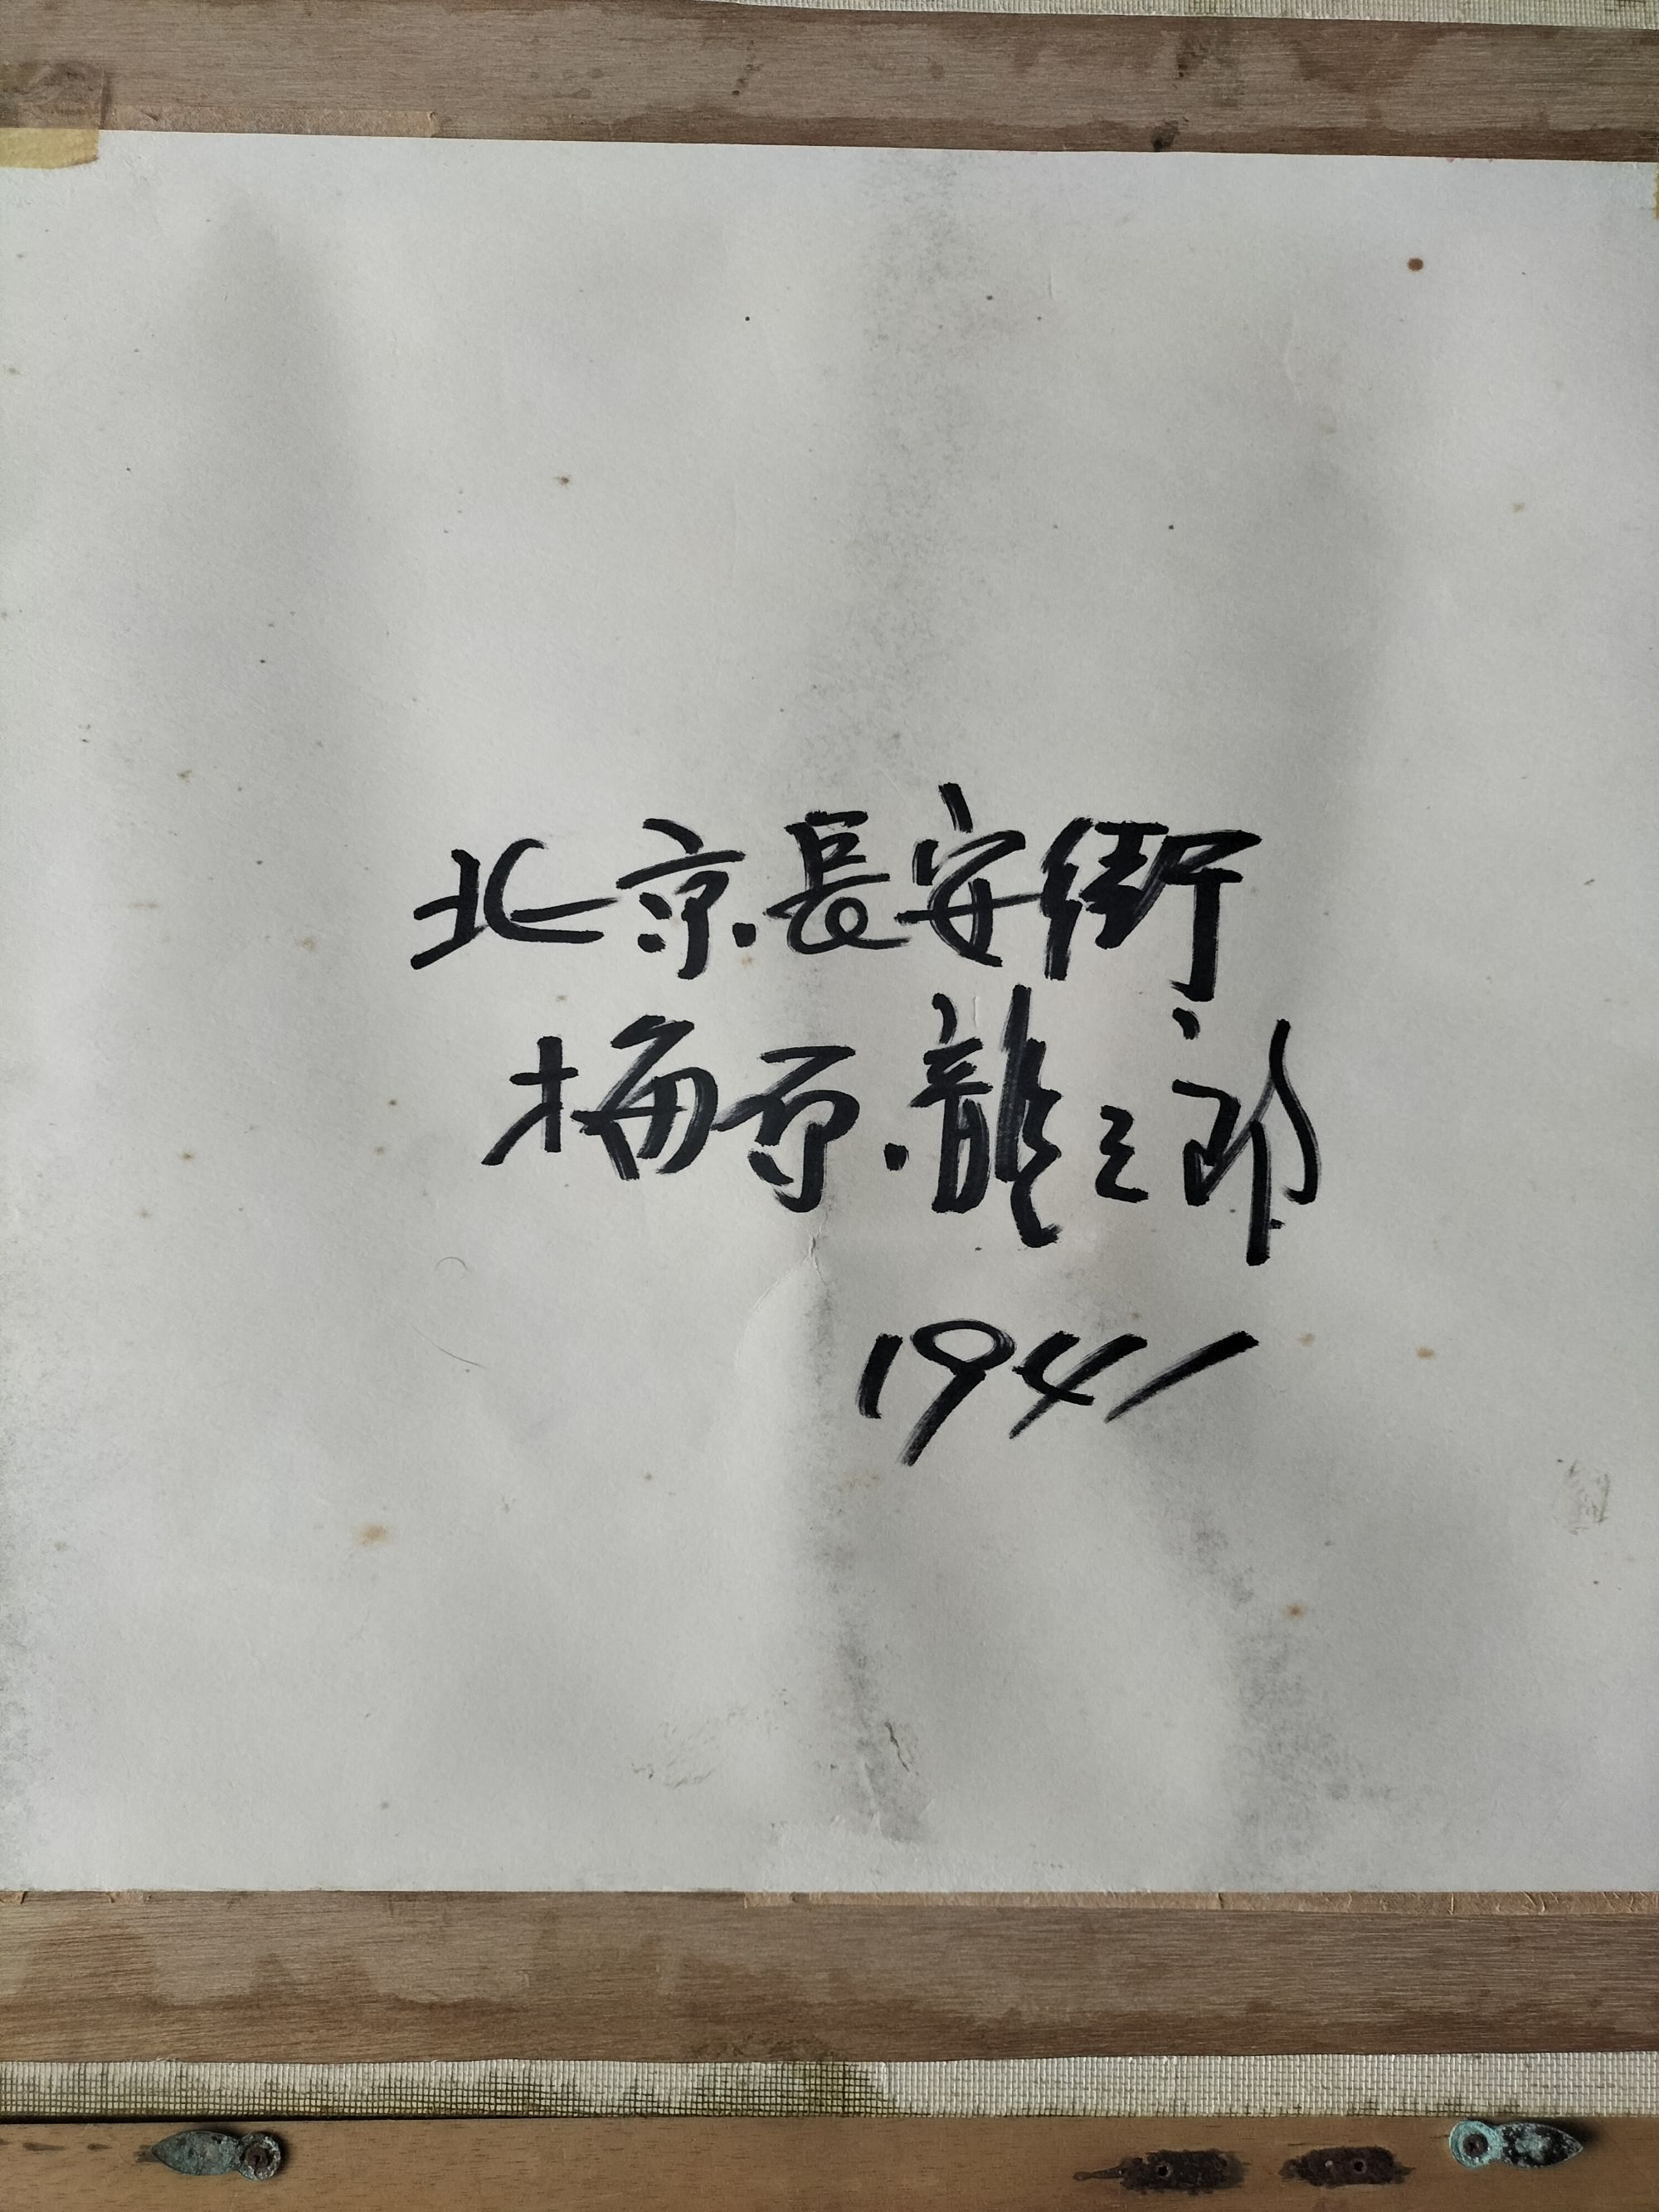 北京.長安街
梅原.龍三郎
1941